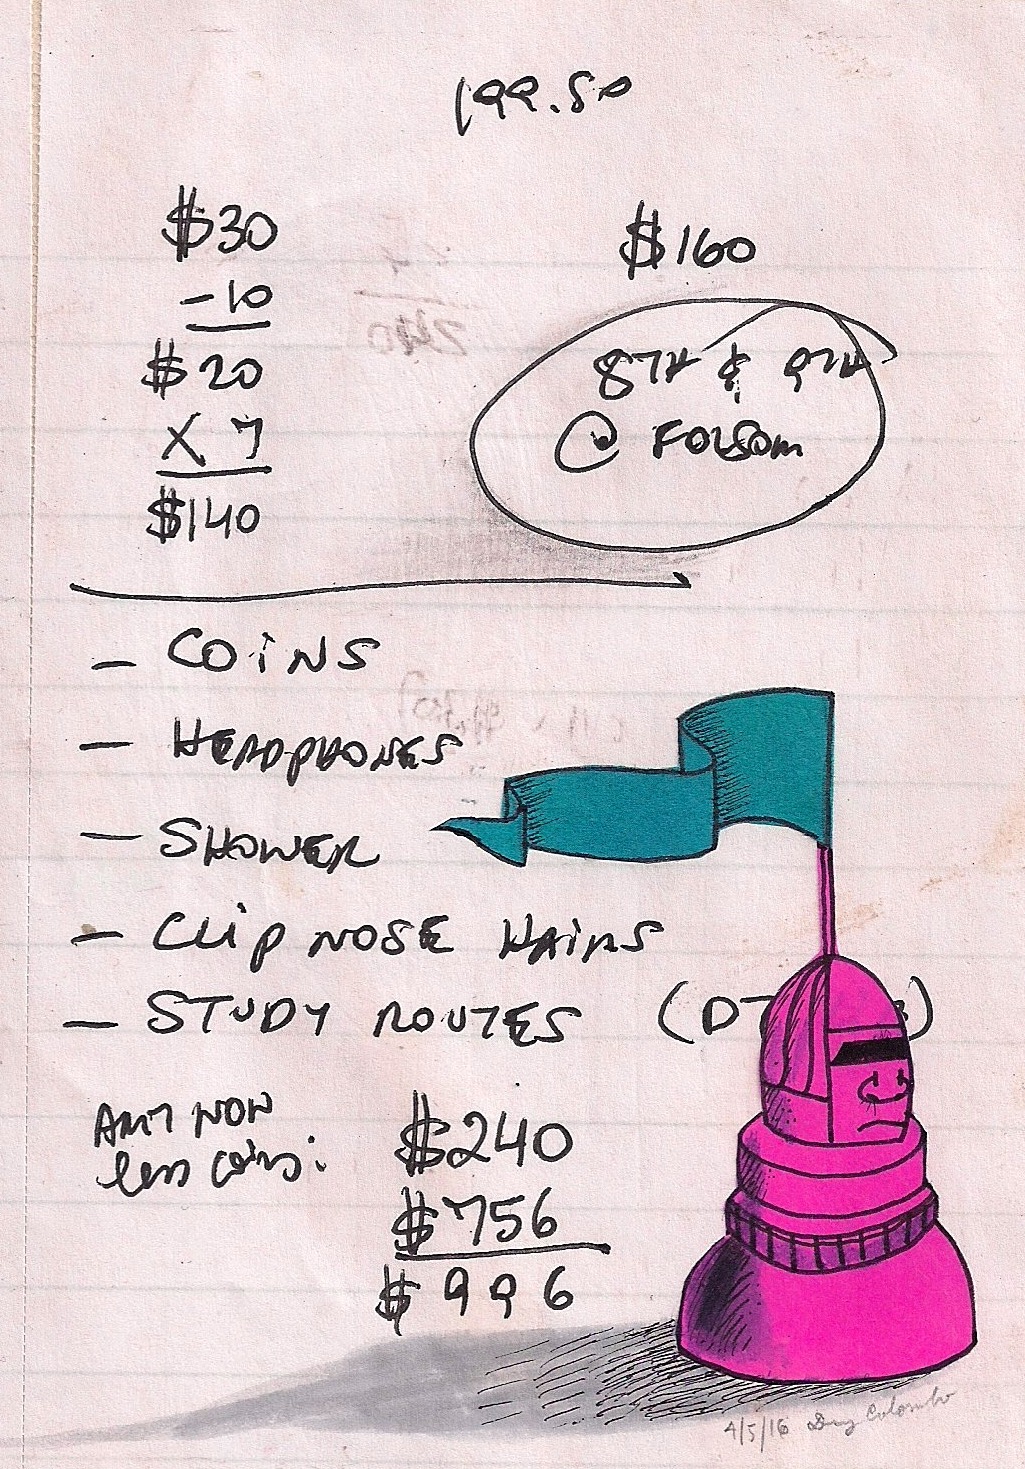 199.50
$30
-10
$20
X 7
$140
$160
8TH & 9TH
@ FOLSOM
- COINS
- HEADPHONES
- SHOWER
- CLIP NOSE HAIRS
- STUDY ROUTES (DT )
AMT NOW
less coins:
$240
$756
$996
4/5/16 Colombo